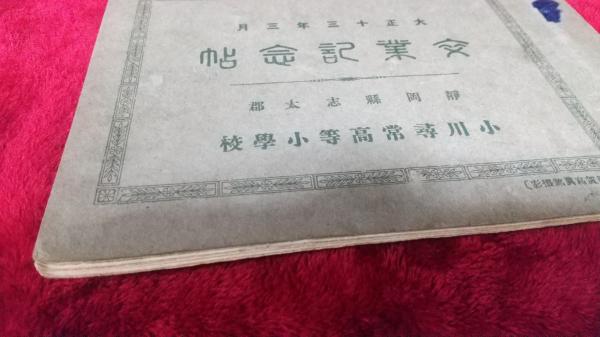 大正十三年三月
卒業記念帖
靜岡縣志太郡
小川尋常高等小學校